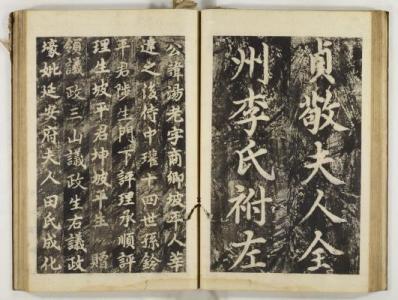 貞敬夫人全
州李氏祔左
公諱湯老字商卿坡平人莘
達之後侍中瓘十四世孫鈴
平君陟生門下評理承順評
理生坡平君坤坡平生 贈
領議政三山議政生右議政
壕妣延安府夫人田氏成化